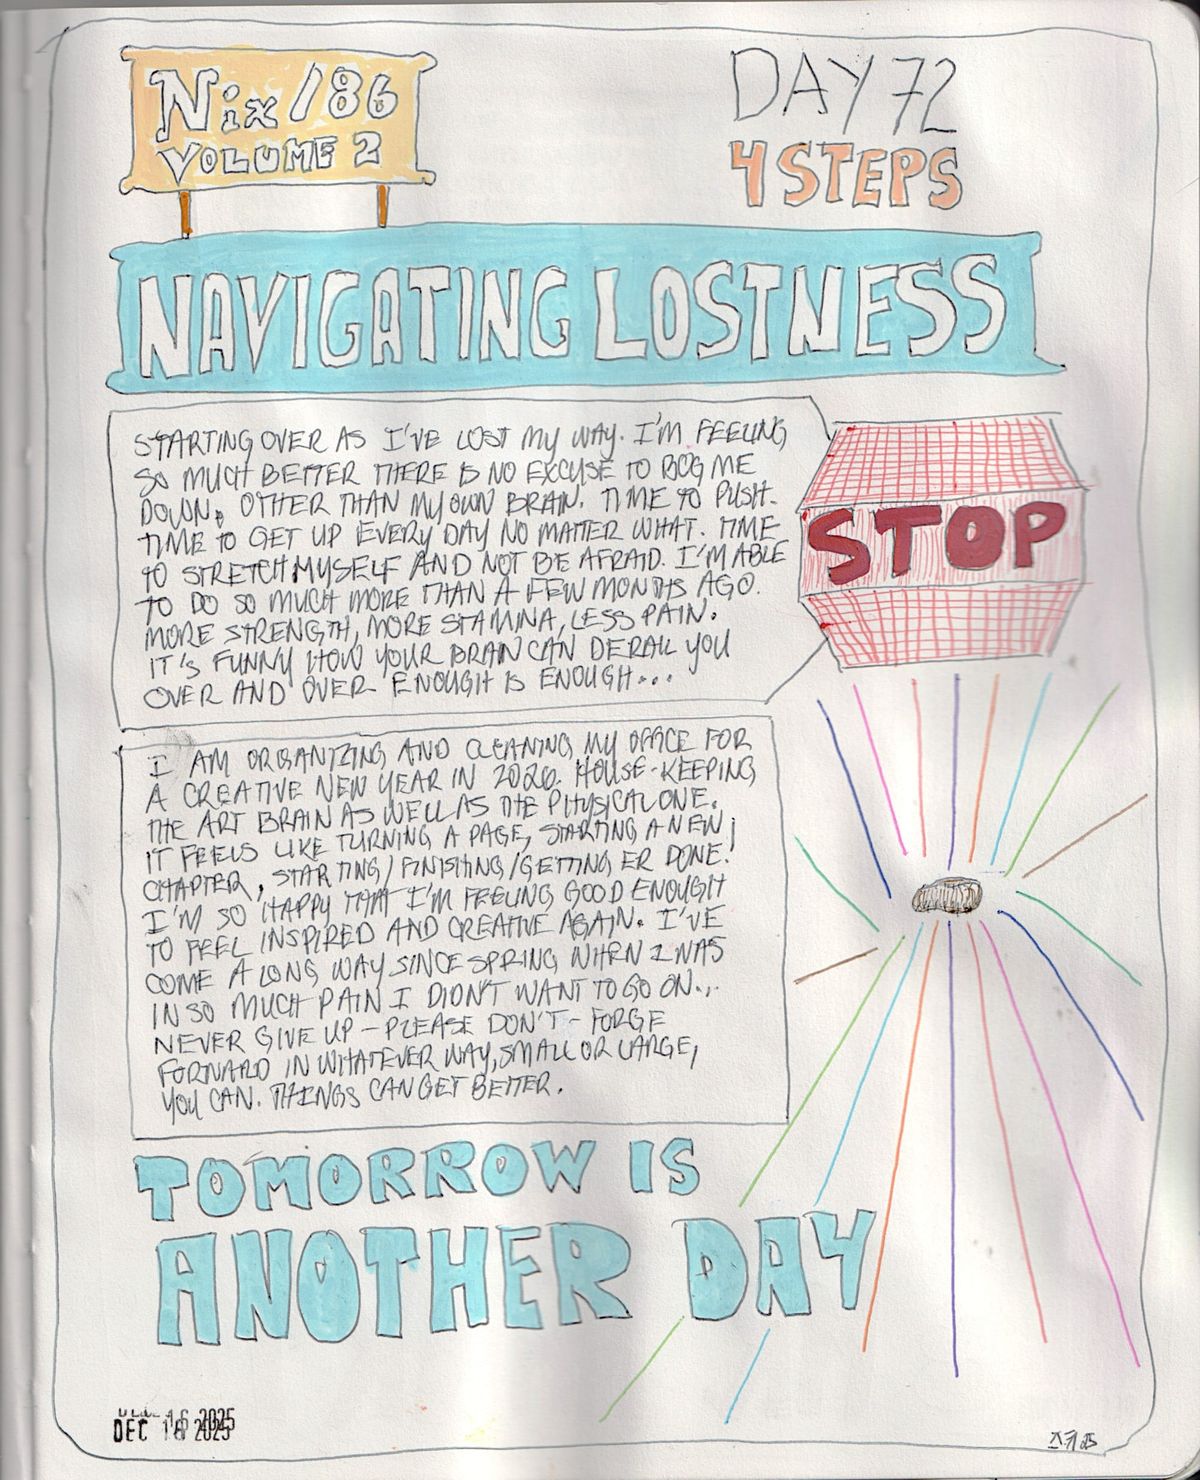 Nix/86
VOLUME 2
DAY 72
4 STEPS
NAVIGATING LOSTNESS
STARTING OVER AS I'VE LOST MY WAY. I'M FEELING
SO MUCH BETTER THERE IS NO EXCUSE TO BOG ME
DOWN. OTHER THAN MY OWN BRAIN. TIME TO PUSH.
TIME TO GET UP EVERY DAY NO MATTER WHAT. TIME
TO STRETCH MYSELF AND NOT BE AFRAID. I'M ABLE
TO DO SO MUCH MORE THAN A FEW MONTHS AGO.
MORE STRENGTH, MORE STAMINA, LESS PAIN.
IT'S FUNNY HOW YOUR BRAIN CAN DERAIL YOU
OVER AND OVER ENOUGH IS ENOUGH...
STOP
I AM ORGANIZING AND CLEANING MY OFFICE FOR
A CREATIVE NEW YEAR IN 2026. HOUSE-KEEPING
THE ART BRAIN AS WELL AS THE PHYSICAL ONE.
IT FEELS LIKE TURNING A PAGE, STARTING A NEW
CHAPTER, STARTING/FINISHING/GETTING ER DONE!
I'M SO HAPPY THAT I'M FEELING GOOD ENOUGH
TO FEEL INSPIRED AND CREATIVE AGAIN. I'VE
COME A LONG WAY SINCE SPRING WHEN I WAS
IN SO MUCH PAIN I DIDN'T WANT TO GO ON...
NEVER GIVE UP - PLEASE DON'T - FORGE
FORWARD IN WHATEVER WAY, SMALL OR LARGE,
YOU CAN. THINGS CAN GET BETTER.
TOMORROW IS
ANOTHER DAY
DEC 16 2025